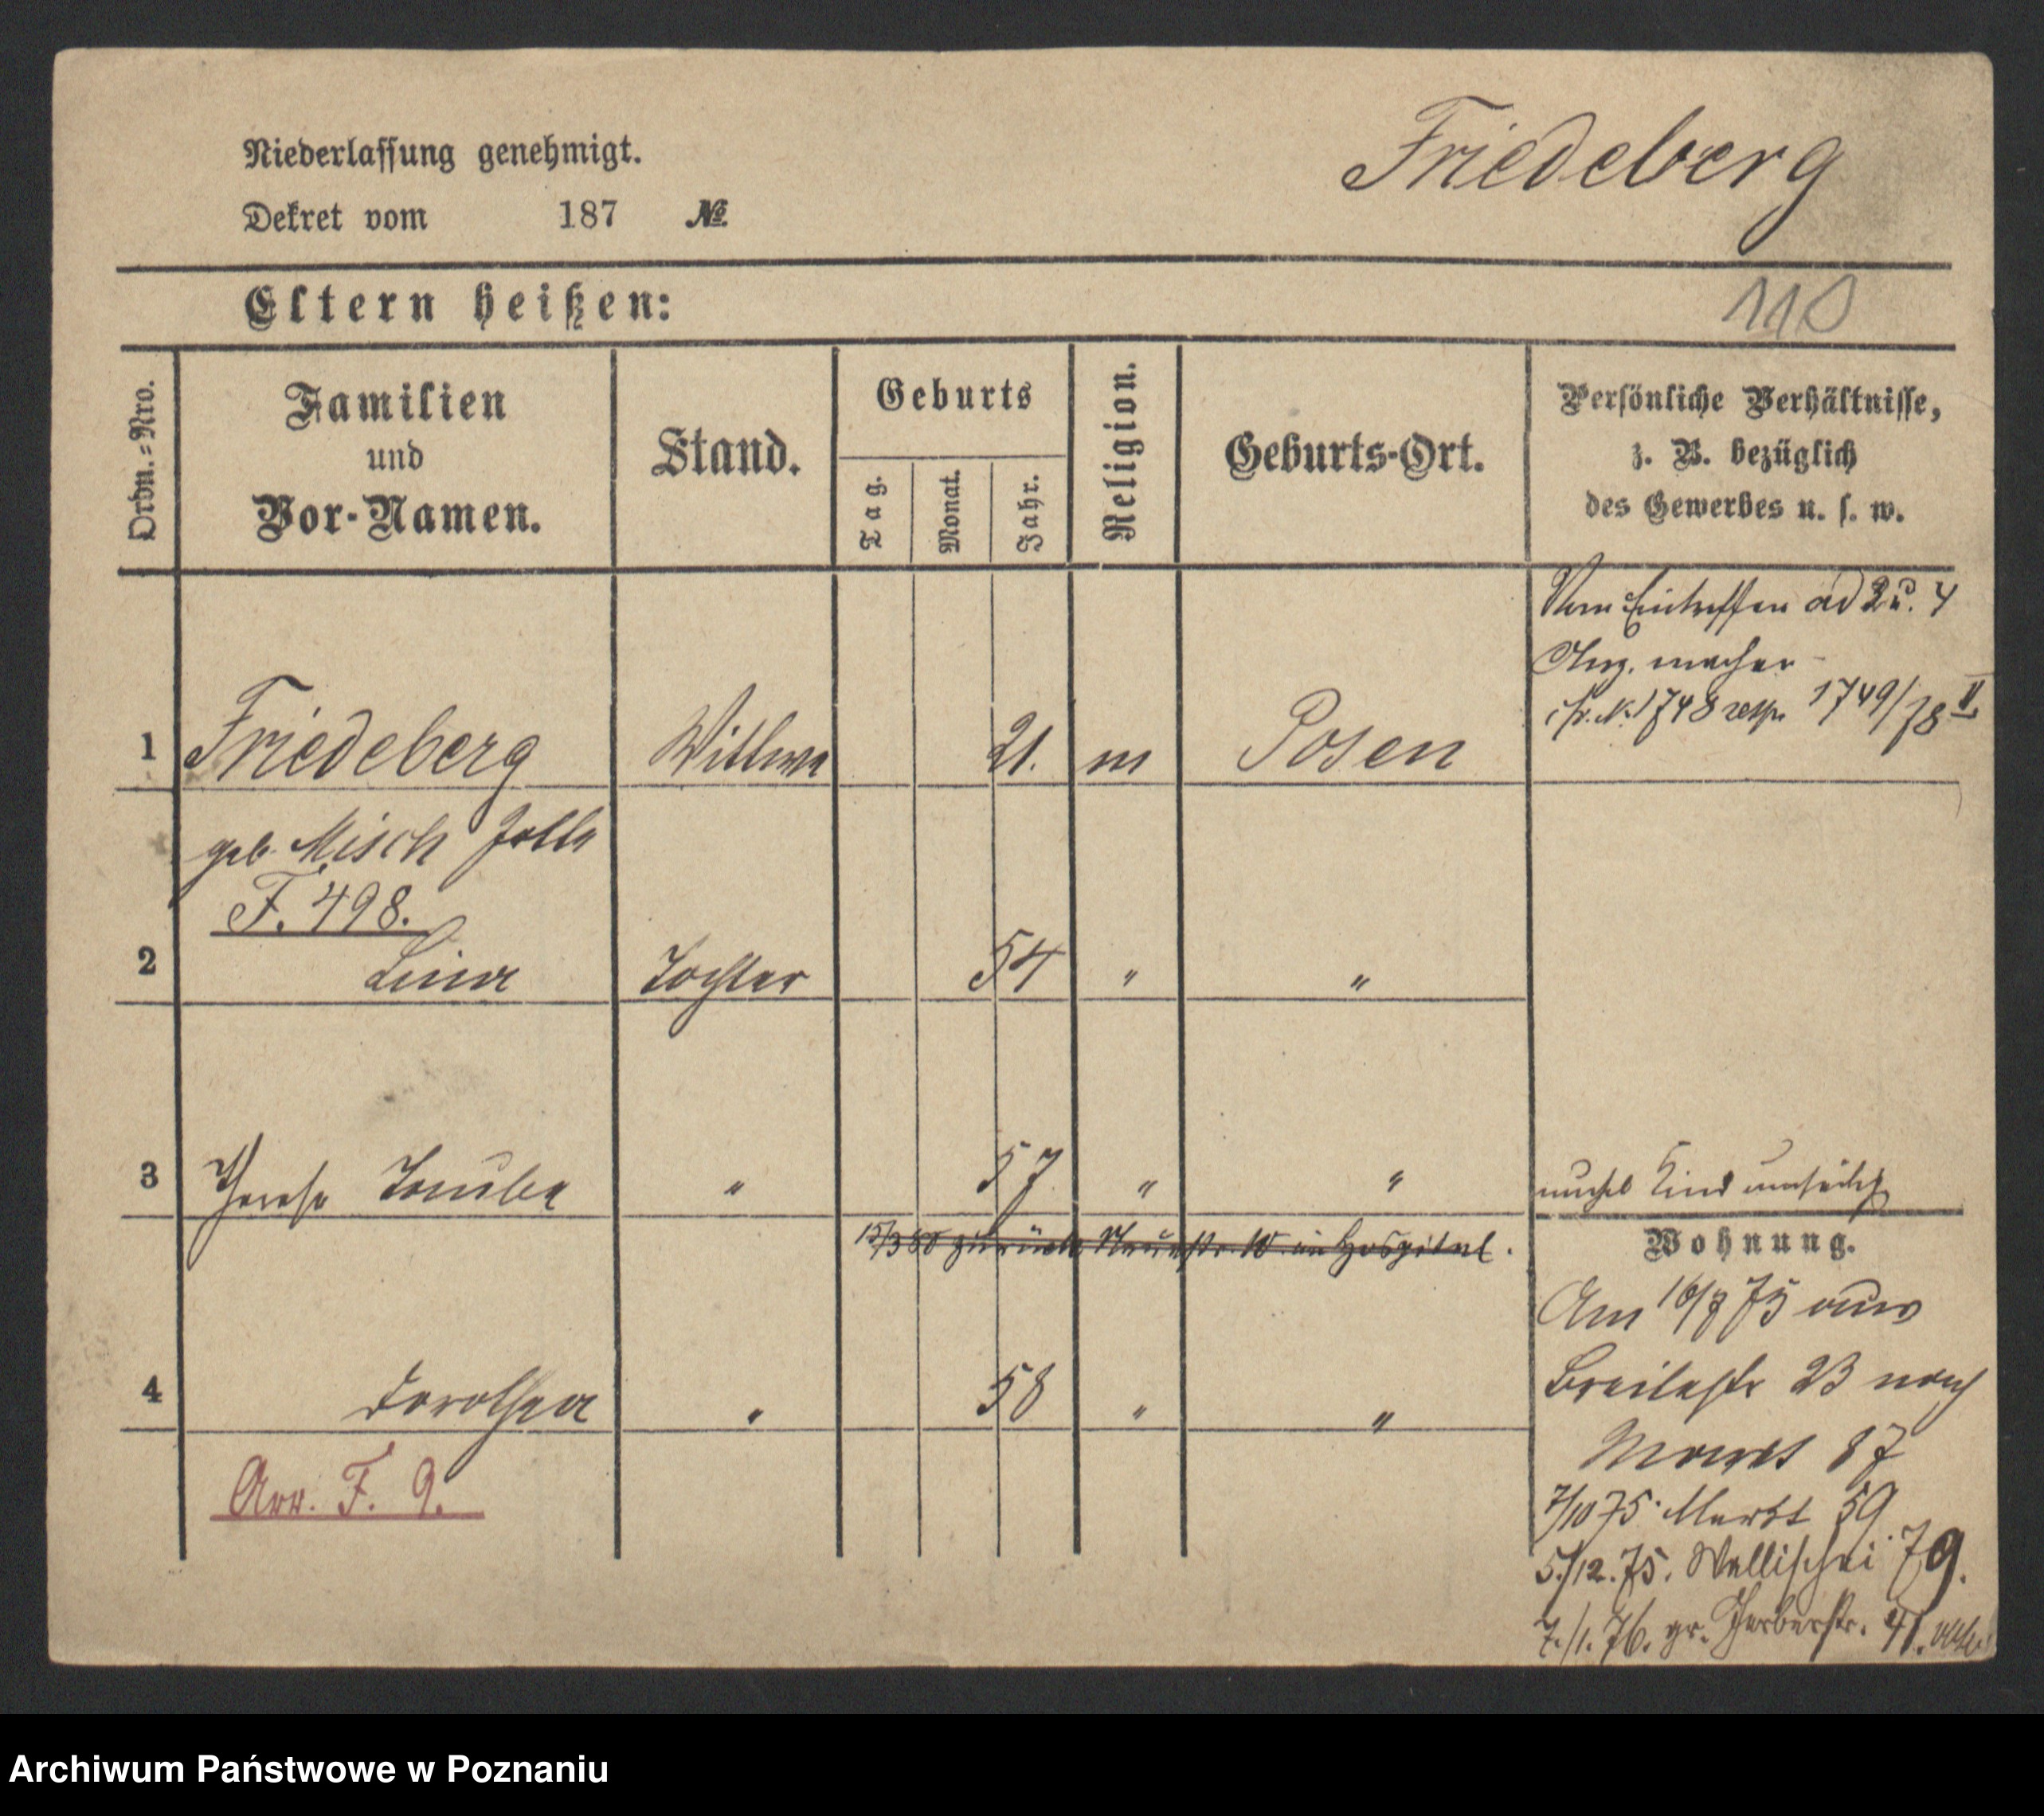 Niederlassung genehmigt.
Friedeberg
Dekret vom 187 №
Eltern heißen:
110
Ordn.-Nro.
Familien
und
Vor-Namen.
Stand.
Geburts
Tag.
Monat.
Jahr.
Religion.
Geburts-Ort.
Persönliche Verhältnisse,
z. B. bezüglich
des Gewerbes u. s. w.
Vom Eintreffen ad 2 u. 4
Anz. machen
1748 resp. 1749/78 II
1 Friedeberg Wittwe 21. m Posen
geb. Misch Jette
F. 498.
2 Lina Tochter 54 " "
3 Therese Taube " 57 " "
Kind
15/3 80 zurück Neuestr. 10 im Hospital.
Wohnung.
Am 16/7 75 aus
Breitestr 23 nach
Markt 87
4 Dorothea " 58 " "
Arr. F. 9.
7/10 75 Markt 59
5./12. 75. Wallischei 79.
7./1. 76. gr. Gerberstr. 41.
Archiwum Państwowe w Poznaniu